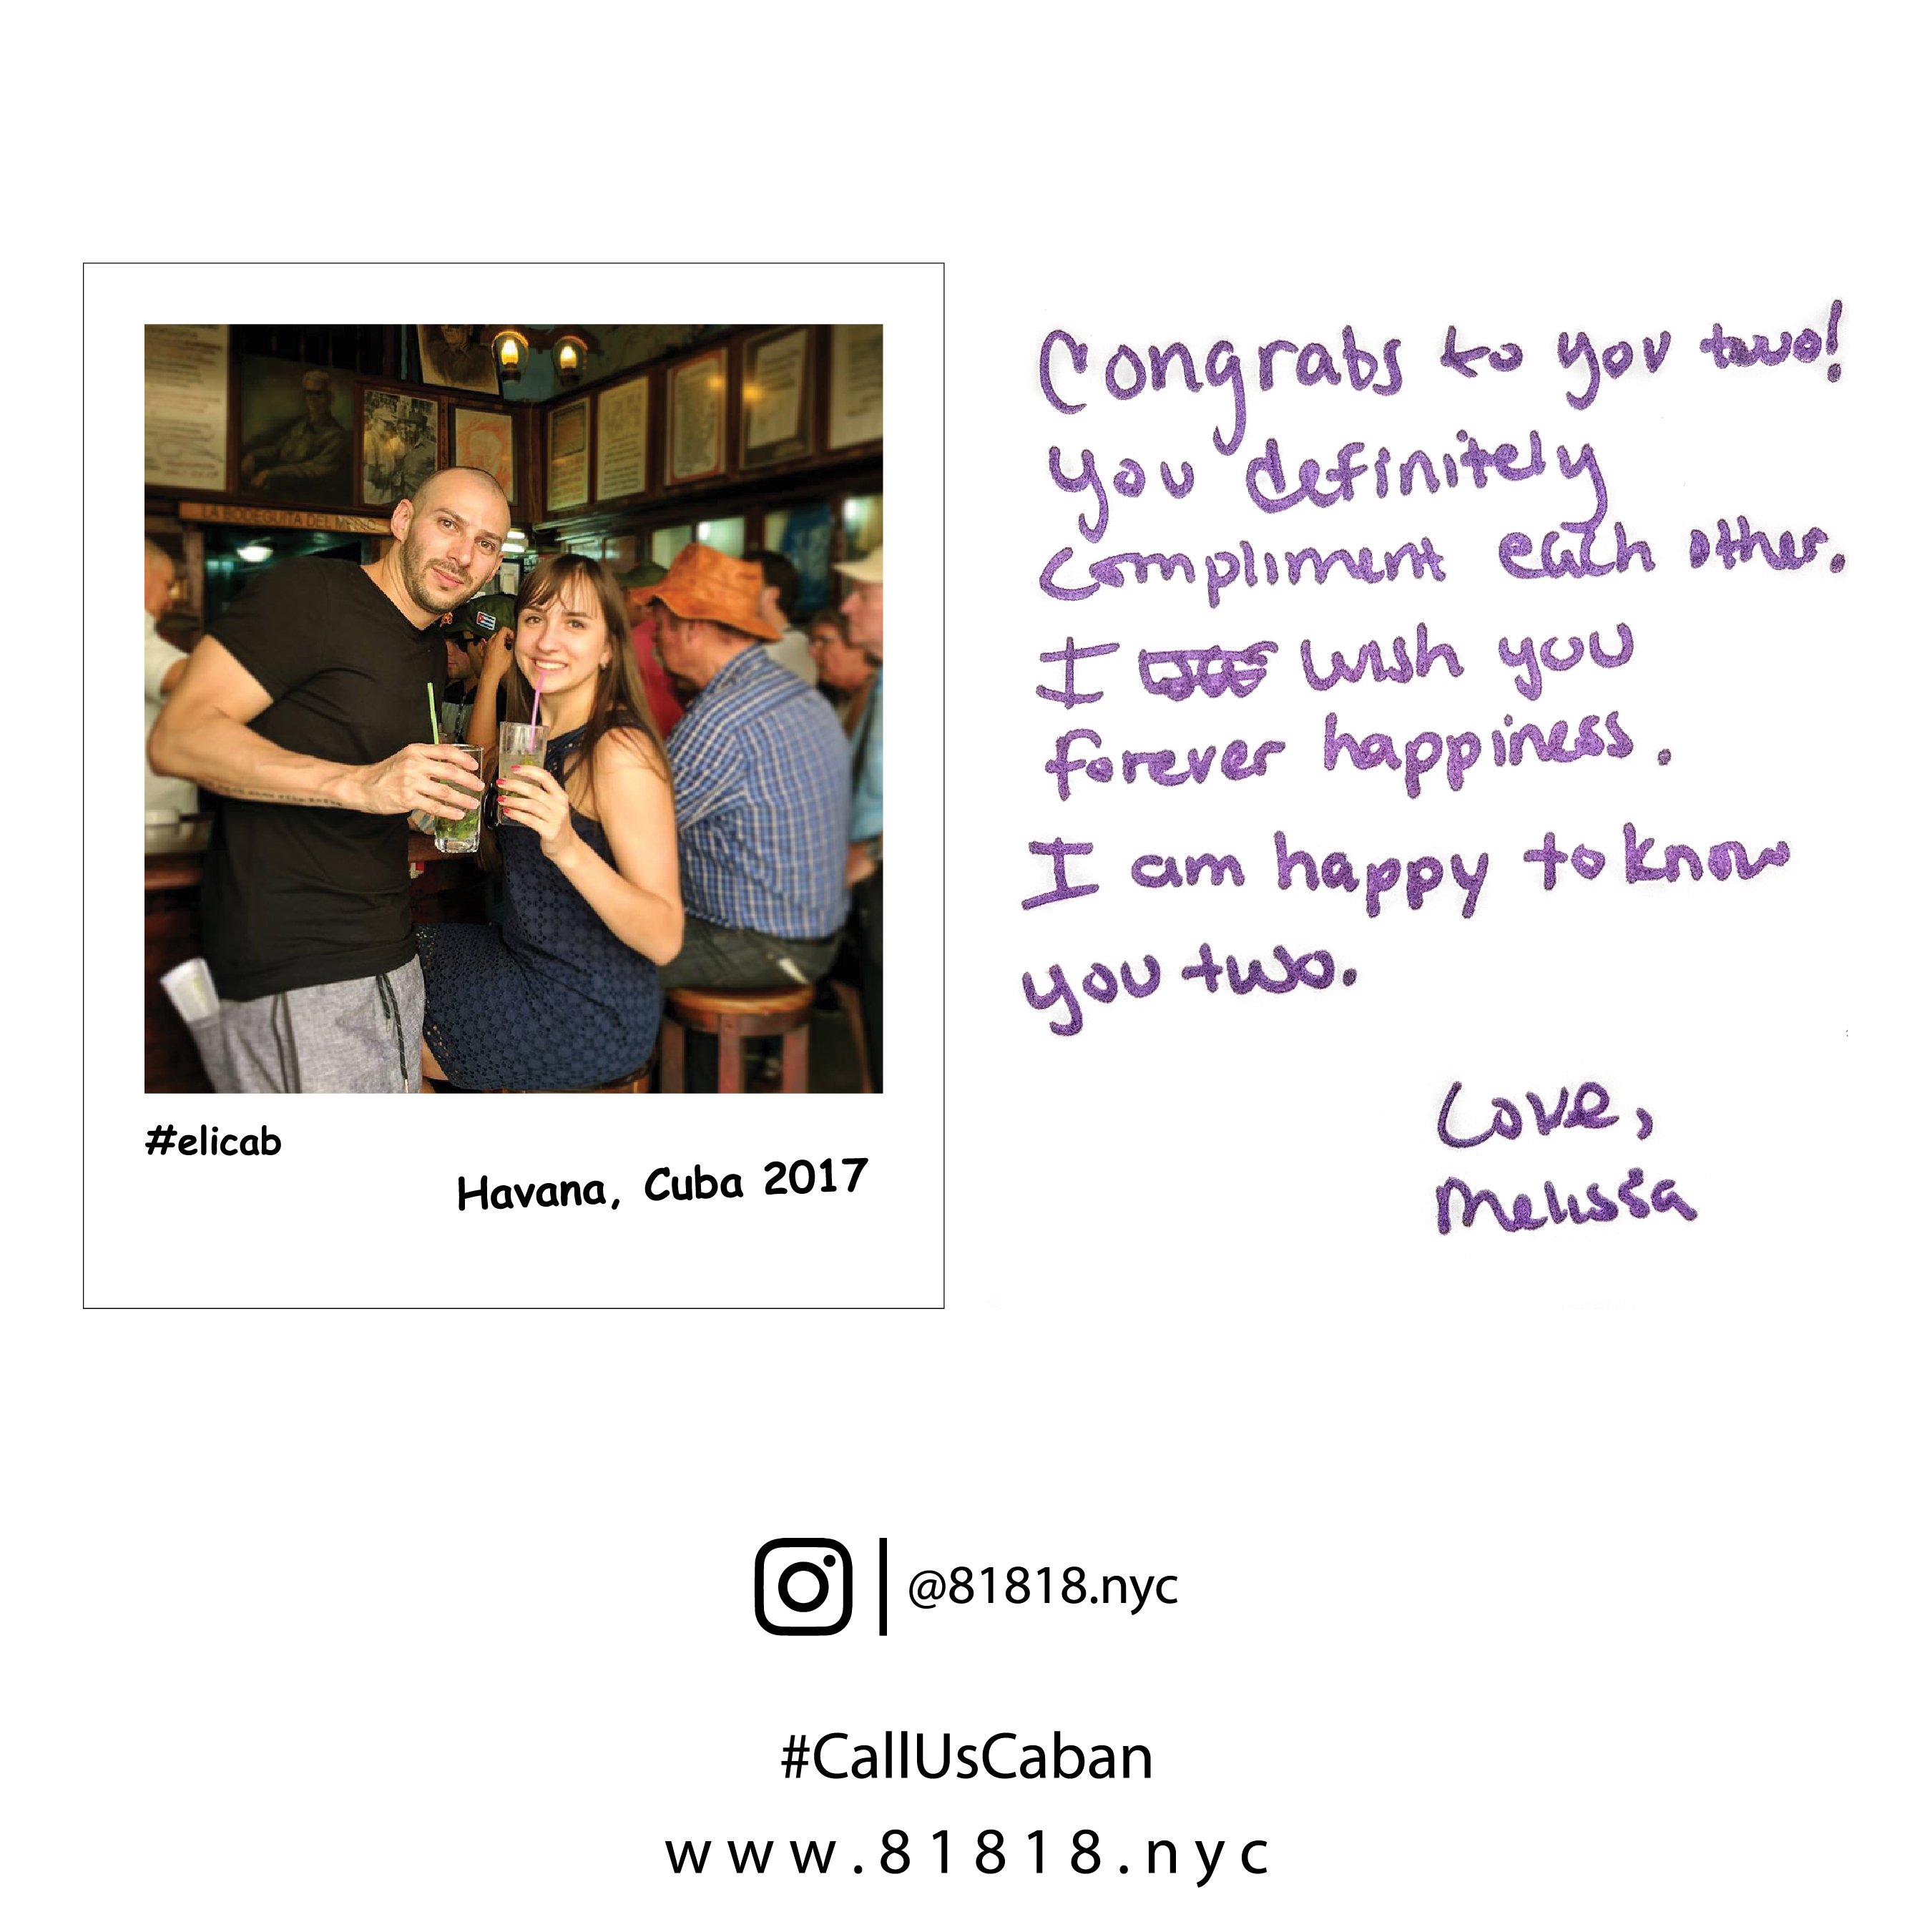 LA BODEGUITA DEL MEDIO
#elicab
Havana, Cuba 2017
Congrats to you two!
You definitely
compliment each other.
I wish you
forever happiness.
I am happy to know
you two.
Love,
Melissa
@81818.nyc
#CallUsCaban
www.81818.nyc